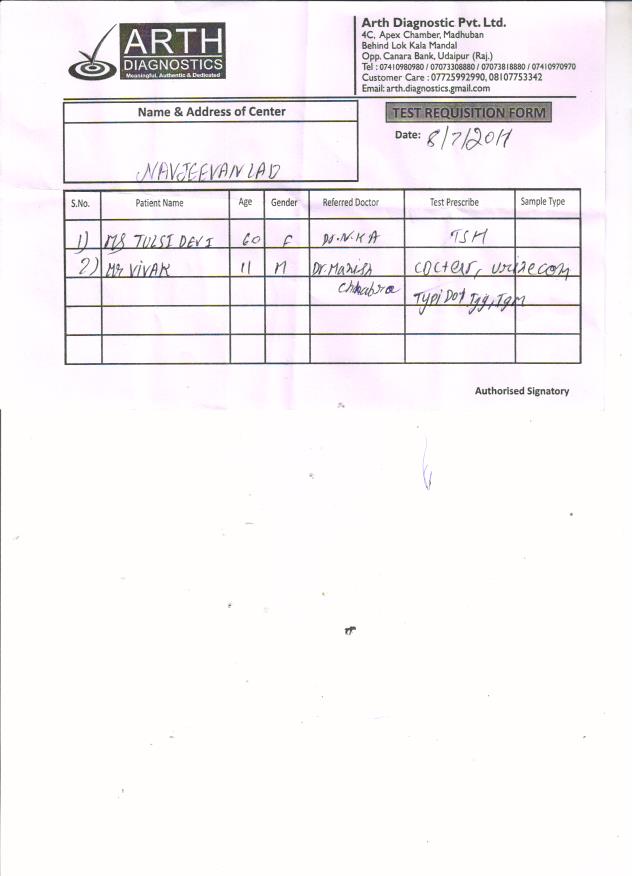 ARTH
DIAGNOSTICS
Meaningful, Authentic & Dedicated
Arth Diagnostic Pvt. Ltd.
4C, Apex Chamber, Madhuban
Behind Lok Kala Mandal
Opp. Canara Bank, Udaipur (Raj.)
Tel : 07410980980 / 07073308880 / 07073818880 / 07410970970
Customer Care : 07725992990, 08107753342
Email: arth.diagnostics.gmail.com
Name & Address of Center
NAVJEEVAN LAD
TEST REQUISITION FORM
Date: 8/7/2017
S.No. Patient Name Age Gender Referred Doctor Test Prescribe Sample Type
1) MS TULSI DEVI 60 F Dr. N.K A TSH
2) Mr VIVAK 11 M Dr. Manish Chhabra urine com
Typi Dot Igg, Igm
Authorised Signatory